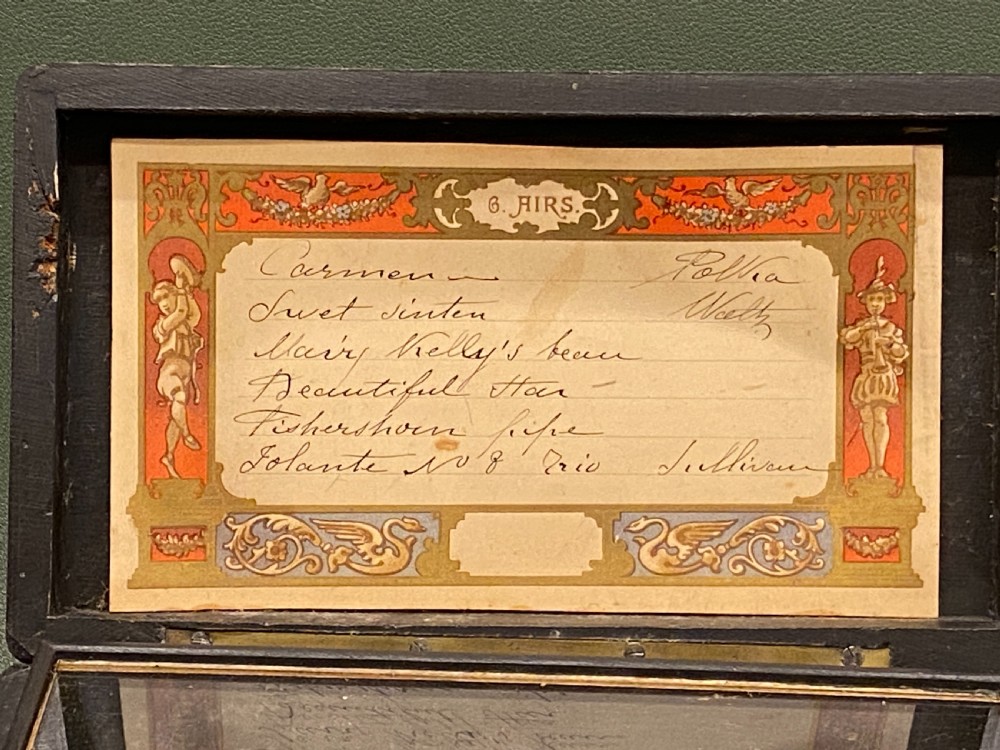 6. AIRS.
Carmen Polka
Swet sinten Waltz
Mairy Kelly's beau
Beautiful Star
Fishershorn pipe
Iolante No 8 Trio Sullivan